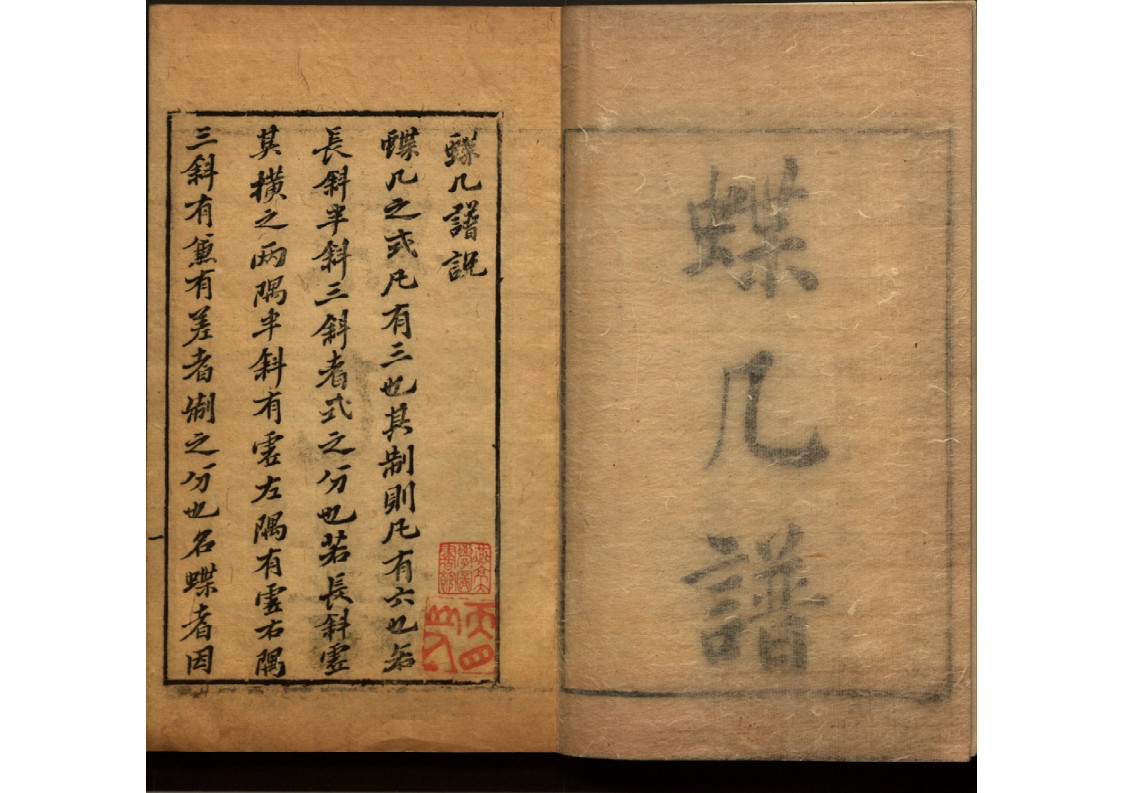 蝶几譜
蝶几譜説
蝶几之式凡有三也其制則凡有六也名
長斜半斜三斜者式之分也若長斜虛
其橫之兩隅半斜有虛左隅有虛右隅
三斜有㢘有差者制之分也名蝶者因
燕京大學圖書館